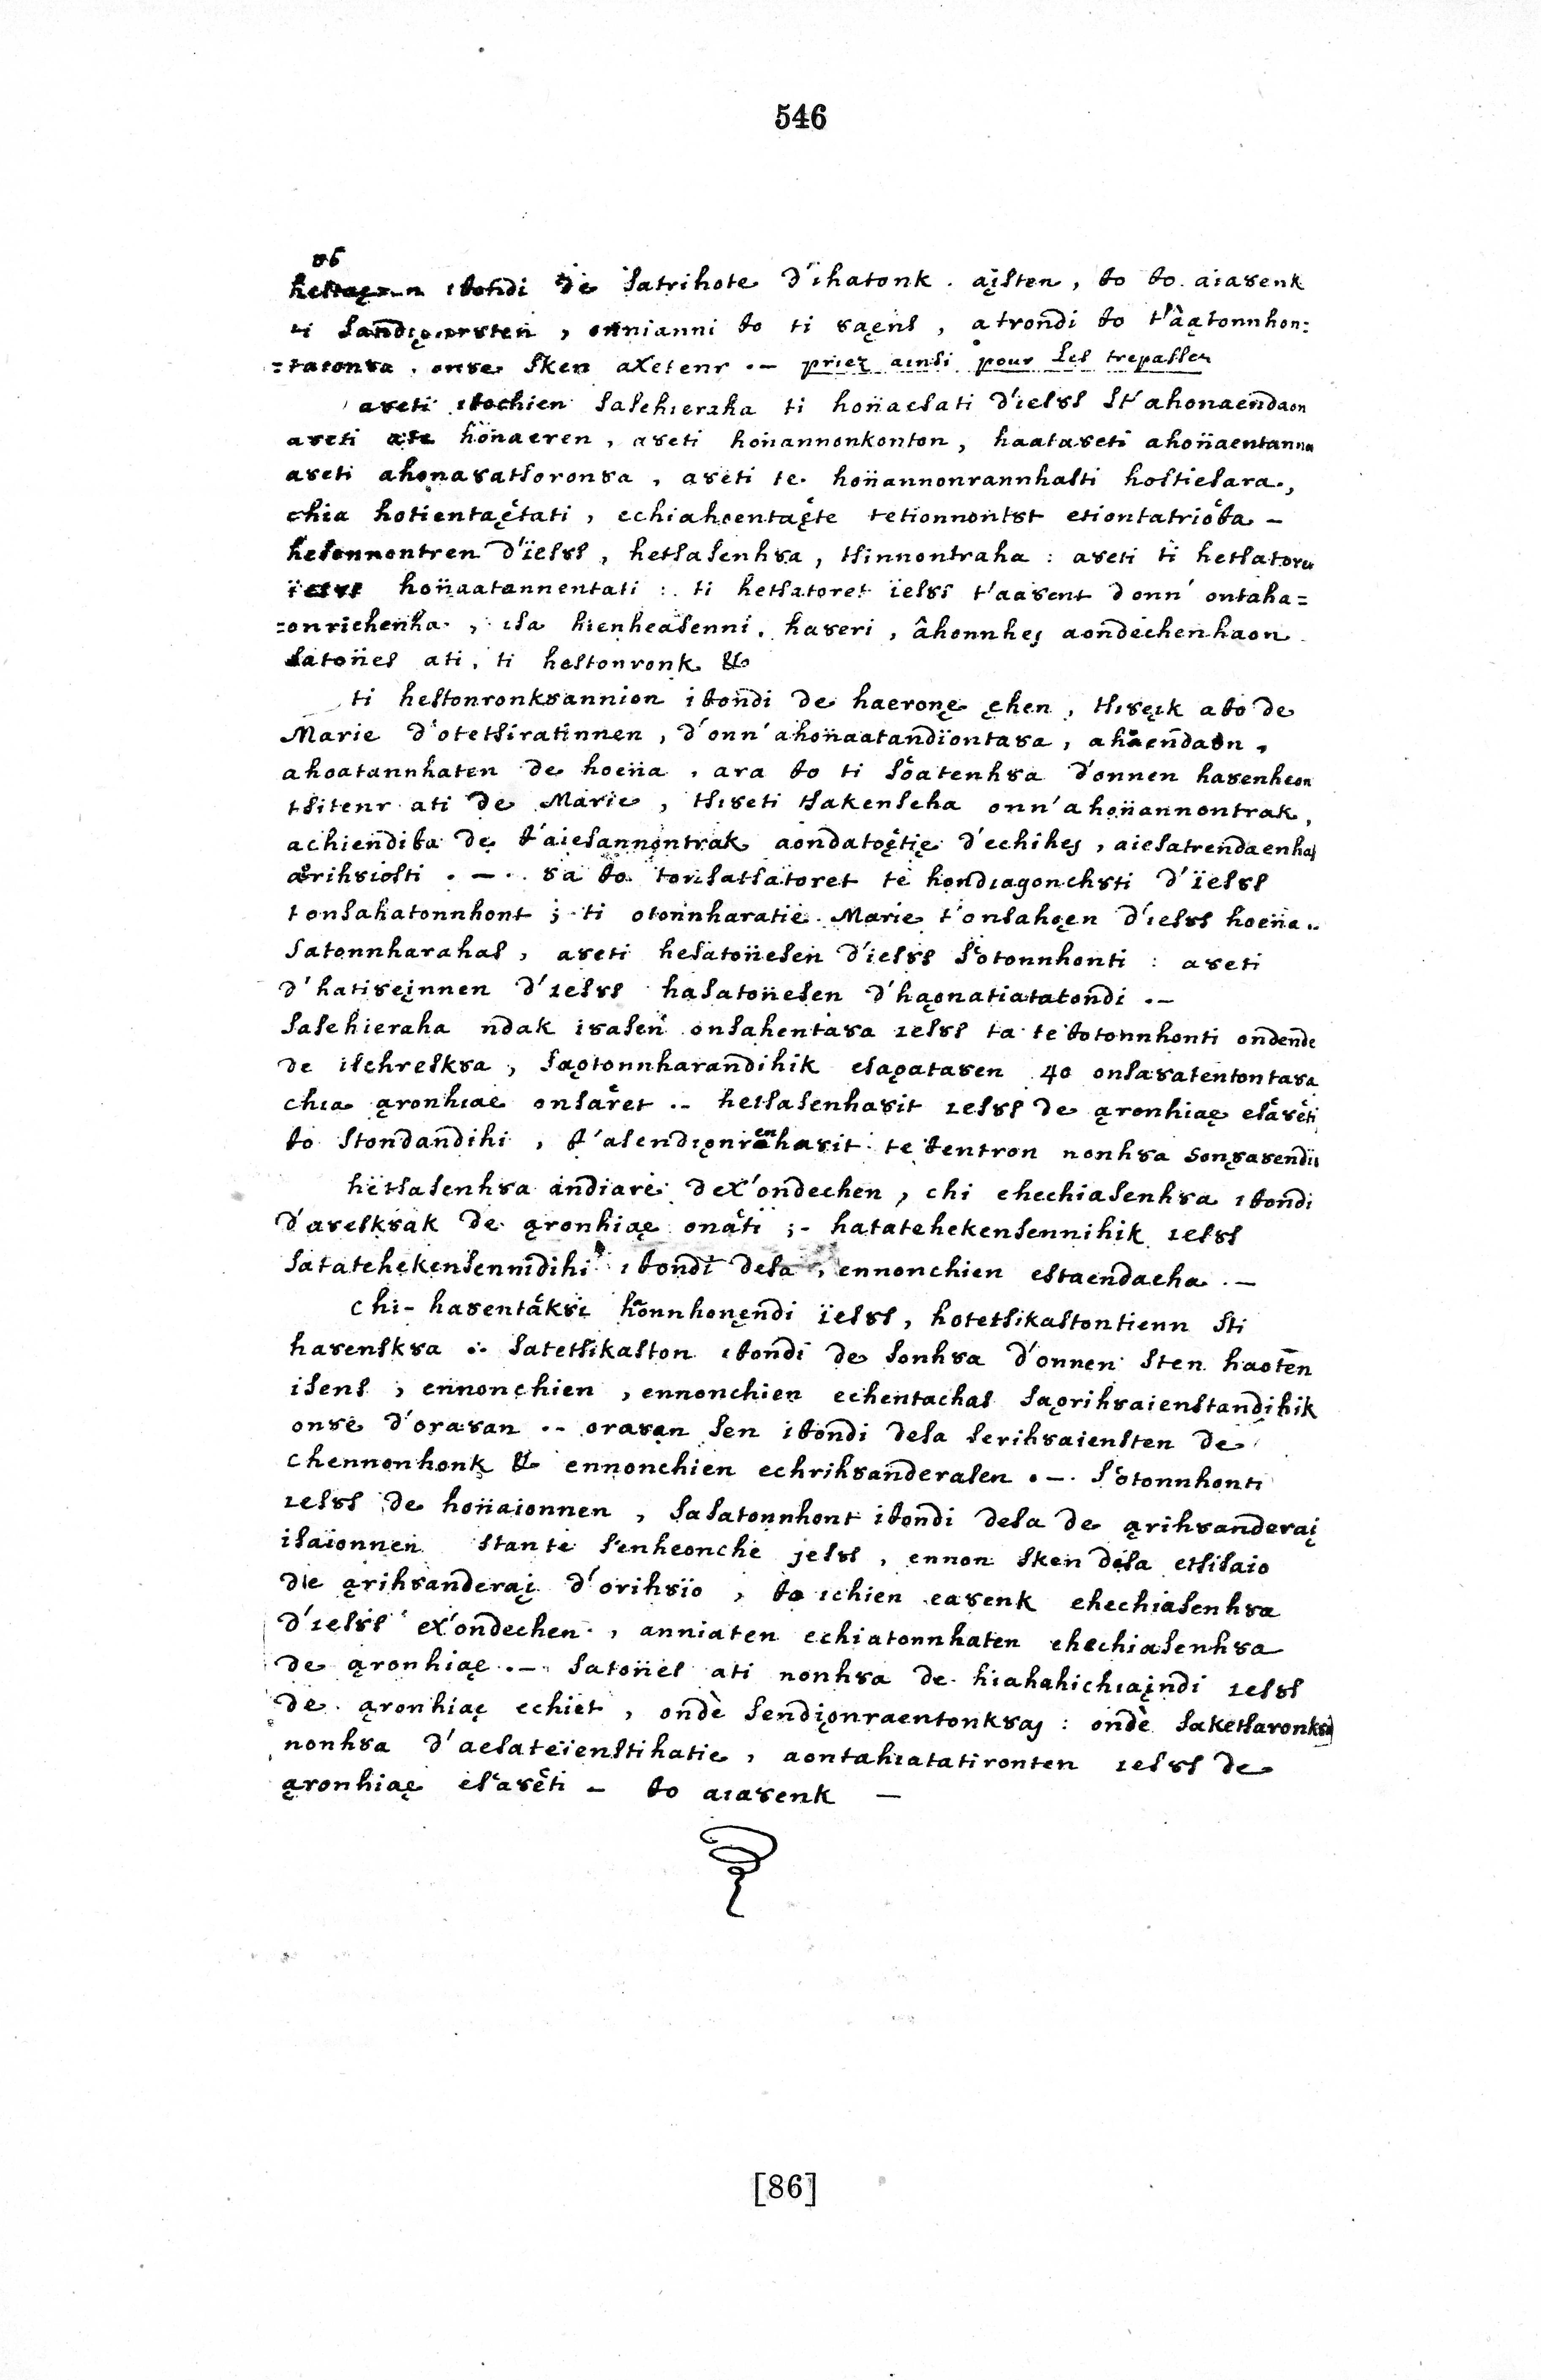 546
86
ibondi de satrihote d'ihatonk . aįsten , to to . aiaȣenk
ti , onnianni to ti ȣaęns , atrondi to t'àątonnhon:
=tatonȣa . onȣe sken aχetenr .- priez ainsi pour les trepassez
aȣeti itochien sasehieraha ti hoñaesati d'iesȣs st'ahonaendaon
aȣeti ate hoñaeren , aȣeti hoñannonkonton , haataȣeti ahoñaentanna
aȣeti ahonaȣatsoronȣa , aȣeti te hoñannonrannhasti hostiesara ,
chia hotientaętati , echiahoentaęte tetionnontst etiontatriota -
hesonnontren d'ïesȣs , hetsasenhȣa , tsinnontraha : aȣeti ti hetsatore
ïesȣs hoñaatannentati : ti hetsatoret ïesȣs t'aaȣent d onn' ontaha=
=onrichenha , isa hienheasenni . haȣeri , âhonnhes aondechenhaon
satoñes ati , ti hestonronk &
ti hestonronkȣannion itondi de haeronę ęhen , tsiȣęik ato de
Marie d'otetsiratinnen , d'onn'ahoñaatandïontaȣa , ahaendaon ,
ahoatannhaten de hoeña , ara to ti soatenhȣa d'onnen haȣenheon
tsitenr ati de Marie , tsiȣeti tsakenseha onn'ahoñannontrak ,
achiendita de t'aiesannontrak aondatoętię d'echihes , aiesatrendaenhas
arihȣiosti . - . ȣa to tonsatsatoret te hondiagonchȣti d'ïesȣs
tonsahatonnhont ; ti otonnharatie Marie t'onsahoęn d'iesȣs hoeña ..
satonnharahas , aȣeti hesatoñesen d'iesȣs sotonnhonti : aȣeti
d'hatiȣeįnnen d'iesȣs hasatoñesen d'hąonatiatatondi .-
sasehieraha ndak iȣasen onsahentaȣa iesȣs ta te totonnhonti ondende
de ischreskȣa , sąotonnharandihik esaąataȣen 40 onsaȣatentontaȣa
chia ąronhiae onsaret .. hetsasenhaȣit iesȣs de ąronhiaę esaȣeti
to stondandihi , t'asendiǫnraenhaȣit te tentron nonhȣa
hëtsasenhȣa andiare deχ'ondechen , chi ehechiasenhȣa itondi
d'aȣeskȣak de ąronhiaę onati ;- hatatehekensennihik iesȣs
satatehekensennidihi itondi desa , ennonchien estaendaeha .-
chi- haȣentakȣi honnhonęndi ïesȣs , hotetsikastontienn sti
haȣenskȣa .. satetsikaston itondi de sonhȣa d'onnen sten haoten
isens , ennonchien , ennonchien echentachas sąorihȣaienstandihik
onȣe d'oraȣan .. oraȣan sen itondi desa serihȣaiensten de
chennonhonk & ennonchien echrihȣanderasen .- . sotonnhonti
iesȣs de hoñaionnen , sasatonnhont itondi desa de ąrihȣanderaį
isaïonnen stante senheonche jesȣs , ennon sken desa etsisaio
de ąrihȣanderaį d'orihȣïo , to ichien eaȣenk ehechiasenhȣa
d'iesȣs eχ'ondechen , anniaten echiatonnhaten ehechiasenhȣa
de ąronhiaę .- satoñes ati nonhȣa de hiahahichiaįndi iesȣs
de ąronhiaę echiet , ondè sendiǫnraentonkȣas : ondè saketsaronkȣa
nonhȣa d'aesateïenstihatie , aontahiatatironten iesȣs de
ąronhiaę esaȣeti - to aiaȣenk -
[86]